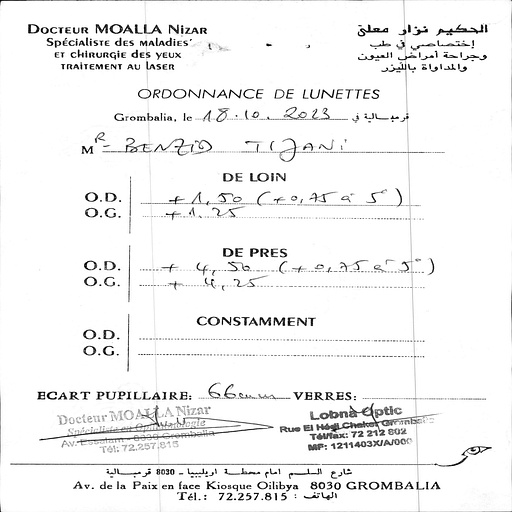 DOCTEUR MOALLA NIZAR
SPÉCIALISTE DES MALADIES
ET CHIRURGIE DES YEUX
TRAITEMENT AU LASER
الحكيم نزار معلى
إختصاصي في طب
وجراحة أمراض العيون
والمداواة بالليزر
ORDONNANCE DE LUNETTES
Grombalia, le 18.10.2023 قرمبالية في
Mr BENZID TIJANI
DE LOIN
O.D. +1,50 (+0,75 à 5°)
O.G. +1.25
DE PRES
O.D. +4,50 (+0,75 à 5°)
O.G. +4,25
CONSTAMMENT
O.D.
O.G.
ECART PUPILLAIRE: 66mm VERRES:
Docteur MOALLA Nizar
Spécialiste en Ophtalmologie
Av. Essalam - 8030 Grombalia
Tél: 72.257.815
Lobna Optic
Rue El Hédi Chaker Grombalia
Tél/fax: 72 212 802
MF: 1211403X/A/000
شارع السلم امام محطة اريليبيا - 8030 قرمبالية
Av. de la Paix en face Kiosque Oilibya 8030 GROMBALIA
Tél.: 72.257.815 : الهاتف